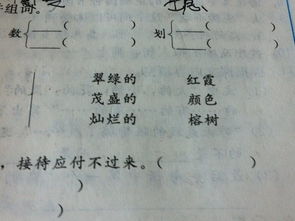 组词。
数 ( ) 划 ( )
( ) ( )
翠绿的 红霞
茂盛的 颜色
灿烂的 榕树
,接待应付不过来。( )
)
)